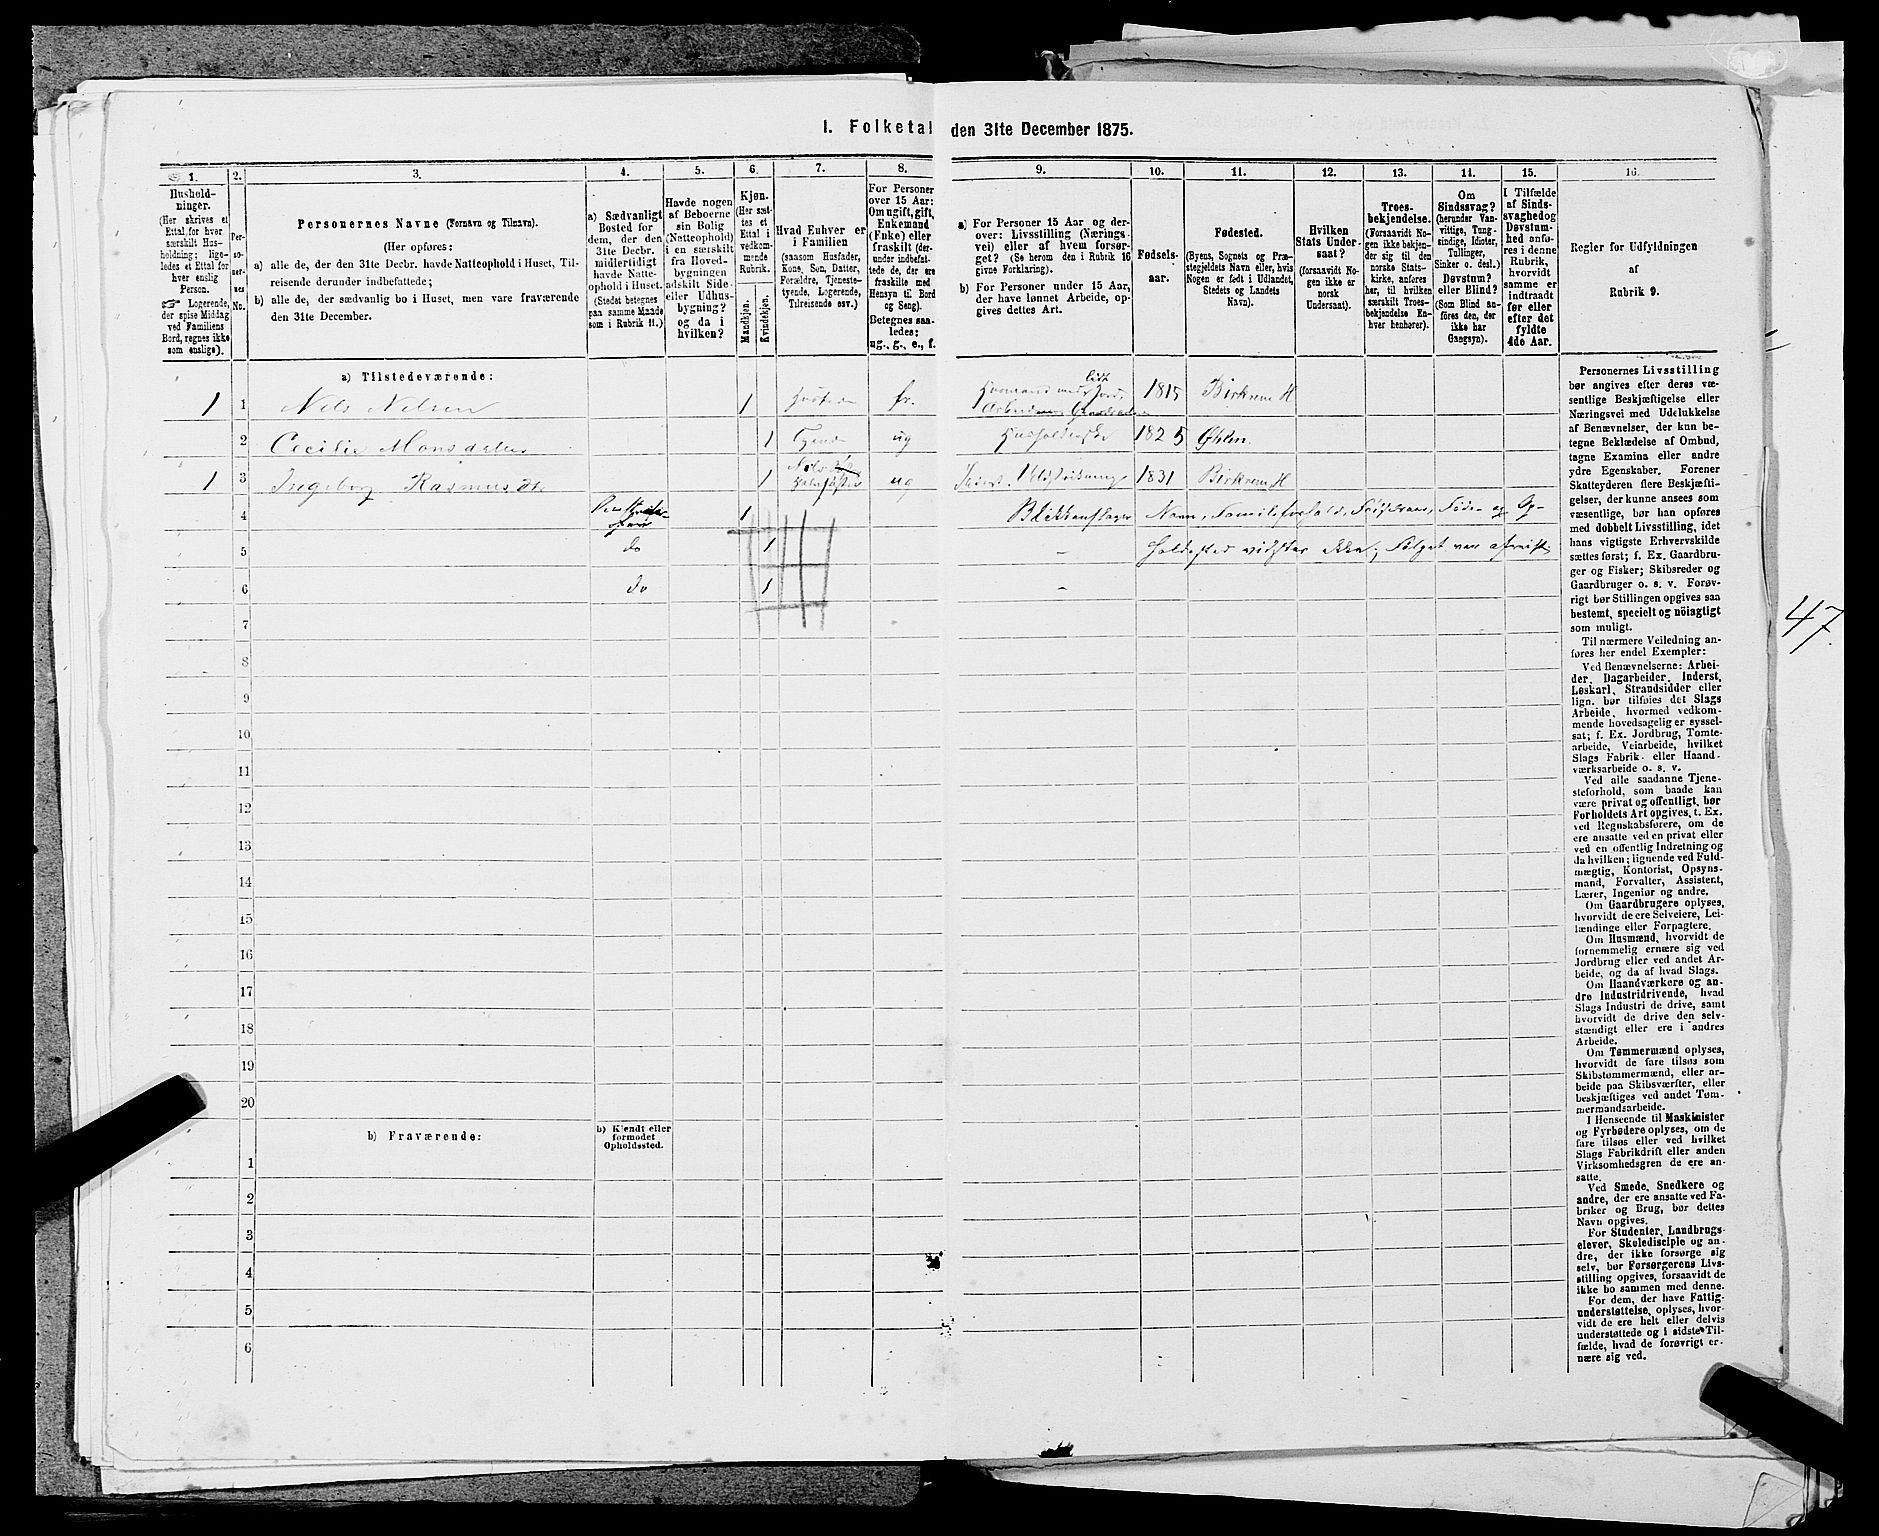 I. Folketal den 31te December 1875.
1.
2.
3.
4.
5.
6.
7.
8.
9.
10.
11.
12.
13.
14.
15.
16.
Hushold-
ninger.
(Her skrives et
Ettal, for hver
særskilt Hus-
holdning; lige-
ledes et Ettal for
hver enslig
Person.
☞ Logerende,
der spise Middag
ved Familiens
Bord, regnes ikke
som enslige).
Per-
so-
ner-
nes
No.
Personernes Navne (Fornavn og Tilnavn).
(Her opføres:
a) alle de, der den 31te Decbr. havde Natteophold i Huset, Til-
reisende derunder indbefattede;
b) alle de, der sædvanlig bo i Huset, men vare fraværende
den 31te December.
a) Sædvanligt
Bosted for
dem, der den
31te Decbr.
midlertidigt
havde Natte-
ophold i Huset.
(Stedet betegnes
paa samme Maade
som i Rubrik 11.)
Havde nogen
af Beboerne
sin Bolig
(Natteophold)
i en særskilt
fra Hoved-
bygningen
adskilt Side-
eller Udhus-
bygning?
og da i
hvilken?
Kjøn.
(Her sæt-
tes et
Ettal i
vedkom-
mende
Rubrik.
Mandkjøn.
Kvindekjøn.
Hvad Enhver er
i Familien
(saasom Husfader,
Kone, Søn, Datter,
Forældre, Tjeneste-
tyende, Logerende,
Tilreisende osv.)
For Personer
over 15 Aar:
Om ugift, gift,
Enkemand
(Enke) eller
fraskilt (der-
under indbefat-
tede de, der ere
fraskilte med
Hensyn til Bord
og Seng).
Betegnes saa-
ledes:
ug., g., e., f.
a) For Personer 15 Aar og der-
over: Livsstilling (Nærings-
vei) eller af hvem forsør-
get? (Se herom den i Rubrik 16
givne Forklaring).
b) For Personer under 15 Aar,
der have lønnet Arbeide, op-
gives dettes Art.
Fødsels-
aar.
Fødested.
(Byens, Sognets og Præ-
stegjeldets Navn eller, hvis
Nogen er født i Udlandet,
Stedets og Landets
Navn).
Hvilken
Stats Under-
saat?
(forsaavidt No-
gen ikke er
norsk
Undersaat).
Troes-
bekjendelse.
(Forsaavidt No-
gen ikke bekjen-
der sig til den
norske Stats-
kirke, anføres
her, til hvilken
særskilt Troes-
bekjendelse En-
hver henhører).
Om
Sindssvag?
(herunder Van-
vittige, Tung-
sindige, Idioter,
Tullinger,
Sinker o. desl.)
Døvstum?
eller Blind?
(Som Blind an-
føres den, der
ikke har
Gangsyn).
I Tilfælde
af Sinds-
svaghed og
Døvstum-
hed anfø-
res i denne
Rubrik,
hvorvidt
samme er
indtraadt
før eller
efter det
fyldte
4de Aar.
Regler for Udfyldningen
af
Rubrik 9.
a) Tilstedeværende:
1 1 Nils Nilsen 1 1815 Birkrem H
2 Cecilie Monsdatter 1 ug 1825
1 3 Ingeborg Rasmusdtr 1 ug 1831 Birkrem H
4 1 Blikkenslager Navn, Familieforhold, Føde- og Op-
5 do 1 – holdssted vidstes ikke; Følget var afreist
6 do 1 –
7
8
9
10
11
12
13
14
15
16
17
18
19
20
b) Fraværende:
b) Kjendt eller
formodet
Opholdssted.
1
2
3
4
5
6
Personernes Livsstilling
bør angives efter deres væ-
sentlige Beskjæftigelse eller
Næringsvei med Udelukkelse
af Benævnelser, der kun be-
tegne Beklædelse af Ombud,
tagne Examina eller andre
ydre Egenskaber. Forener
Skatteyderen flere Beskjæfti-
gelser, der kunne ansees som
væsentlige, bør han opføres
med dobbelt Livsstilling, idet
hans vigtigste Erhvervskilde
sættes først; f. Ex. Gaardbru-
ger og Fisker; Skibsreder og
Gaardbruger o. s. v. Forøv-
rigt bør Stillingen opgives saa
bestemt, specielt og nöiagtigt
som muligt.
Til nærmere Veiledning an-
føres her endel Exempler:
Ved Benævnelserne: Arbei-
der, Dagarbeider, Inderst,
Løskarl, Strandsidder eller
lign. bør tilføies det Slags
Arbeide, hvormed vedkom-
mende hovedsagelig er syssel-
sat; f. Ex. Jordbrug, Tomte-
arbeide, Veiarbeide, hvilket
Slags Fabrik- eller Haand-
værksarbeide o. s. v.
Ved alle saadanne Tjene-
steforhold, som baade kan
være privat og offentligt, bør
Forholdets Art opgives, t. Ex.
ved Regnskabsførere, om de
ere ansatte ved en privat eller
ved en offentlig Indretning og
da hvilken; lignende ved Fuld-
mægtig, Kontorist, Opsyns-
mand, Forvalter, Assistent,
Lærer, Ingeniør og andre.
Om Gaardbrugere oplyses,
hvorvidt de ere Selveiere, Lei-
lændinge eller Forpagtere.
Om Husmænd, hvorvidt de
fornemmelig ernære sig ved
Jordbrug eller ved andet Ar-
beide, og da af hvad Slags.
Om Haandværkere og an-
dre Industridrivende, hvad
Slags Industri de drive, samt
hvorvidt de drive den selv-
stændigt eller ere i andres
Arbeide.
Om Tømmermænd oplyses,
hvorvidt de fare tilsøs som
Skibstømmermænd, eller ar-
beide paa Skibsværfter, eller
beskjæftiges ved andet Tøm-
mermandsarbeide.
I Henseende til Maskinister
og Fyrbødere oplyses, om de
fare tilsøs eller ved hvilket
Slags Fabrikdrift eller anden
Virksomhedsgren de ere an-
satte.
Ved Smede, Snedkere og
andre, der ere ansatte ved Fa-
briker og Brug, bør dettes
Navn opgives.
For Studenter, Landbrugs-
elever, Skoledisciple og an-
dre, der ikke forsørge sig
selv, bør Forsørgerens Livs-
stilling opgives, forsaavidt de
ikke bo sammen med denne.
For dem, der have Fattig-
understøttelse, oplyses, hvor-
vidt de ere helt eller delvis
understøttede og i sidste Til-
fælde, hvad de forøvrigt er-
nære sig ved.
47.